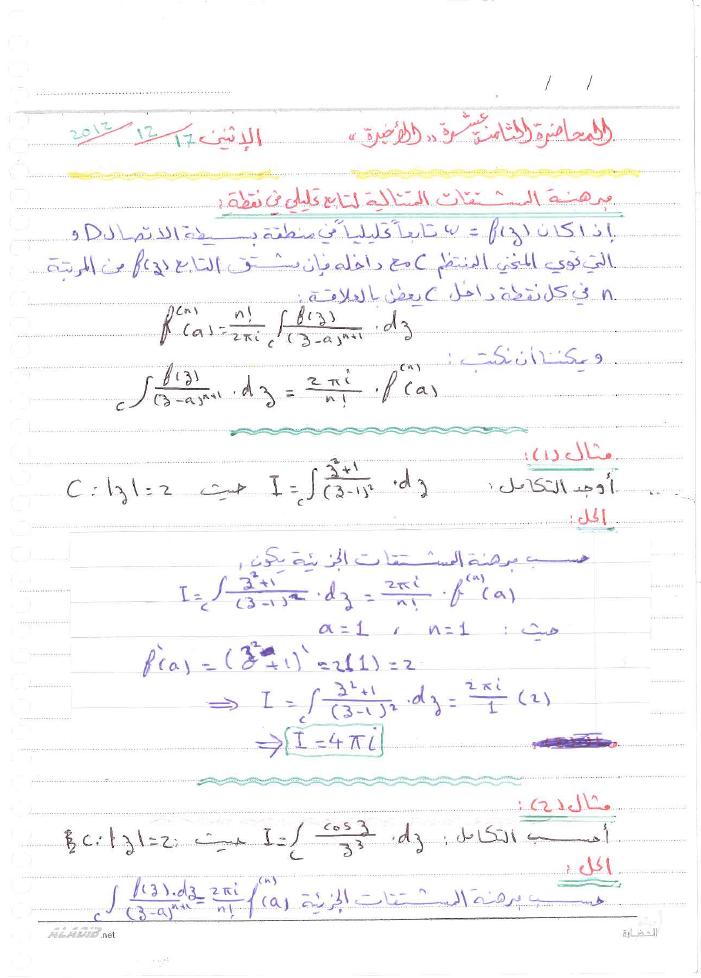 / /
المحاضرة الثامنة عشرة «الأخيرة» الإثنين 17/12/2012
مبرهنة المشتقات المتتالية لتابع تحليلي في نقطة:
إذا كان w = f(z) تابعاً تحليلياً في منطقة بسيطة الاتصال D و
التي تحوي المنحني المنتظم C مع داخله فإن مشتق التابع f(z) من المرتبة
n في كل نقطة داخل C يعطى بالعلاقة:
f^(n)(a) = n!/2πi ∫_c f(z)/(z-a)^(n+1) · dz
ويمكننا أن نكتب:
∫_c f(z)/(z-a)^(n+1) · dz = 2πi/n! · f^(n)(a)
مثال (1):
أوجد التكامل: I = ∫_c (z²+1)/(z-1)² · dz حيث C: |z| = 2
الحل:
حسب مبرهنة المشتقات الجزئية يكون:
I = ∫_c (z²+1)/(z-1)² · dz = 2πi/n! · f^(n)(a)
حيث: n=1 , a=1
f'(a) = (z²+1)' = 2(1) = 2
⇒ I = ∫_c (z²+1)/(z-1)² · dz = 2πi/1 (2)
⇒ I = 4πi
مثال (2):
أحسب التكامل: I = ∫_c cos z/z³ · dz حيث c: |z| = 2
الحل:
حسب مبرهنة المشتقات الجزئية ∫_c f(z).dz/(z-a)^(n+1) = 2πi/n! f^(n)(a)
ALADIB.net
الحضارة